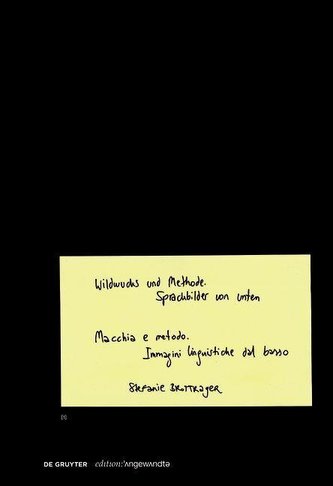 Wildwuchs und Methode.
Sprachbilder von unten
Macchia e metodo.
Immagini linguistiche dal basso
Stefanie Brottrager
DE GRUYTER edition:'ʌngewʌndtə